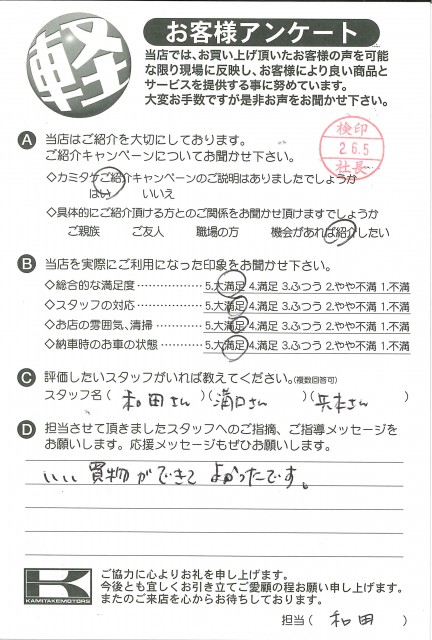 軽
お客様アンケート
当店では、お買い上げ頂いたお客様の声を可能
な限り現場に反映し、お客様により良い商品と
サービスを提供する事に努めています。
大変お手数ですが是非お声をお聞かせ下さい。
検印
2 6.5
社長
A 当店はご紹介を大切にしております。
ご紹介キャンペーンについてお聞かせ下さい。
◇カミタケご紹介キャンペーンのご説明はありましたでしょうか
はい いいえ
◇具体的にご紹介頂ける方とのご関係をお聞かせ頂けますでしょうか
ご親族 ご友人 職場の方 機会があれば紹介したい
B 当店を実際にご利用になった印象をお聞かせ下さい。
◇総合的な満足度 …………… 5.大満足 4.満足 3.ふつう 2.やや不満 1.不満
◇スタッフの対応 …………… 5.大満足 4.満足 3.ふつう 2.やや不満 1.不満
◇お店の雰囲気、清掃 ……… 5.大満足 4.満足 3.ふつう 2.やや不満 1.不満
◇納車時のお車の状態 ……… 5.大満足 4.満足 3.ふつう 2.やや不満 1.不満
C 評価したいスタッフがいれば教えてください。(複数回答可)
スタッフ名 ( 和田さん )( 溝口さん )( 兵本さん )
D 担当させて頂きましたスタッフへのご指摘、ご指導メッセージを
お願いします。応援メッセージもぜひお願いします。
いい買物ができてよかったです。
KAMITAKEMOTORS
ご協力に心よりお礼を申し上げます。
今後とも宜しくお引き立てご愛顧の程お願い申し上げます。
またのご来店を心からお待ちしております。
担当 ( 和田 )